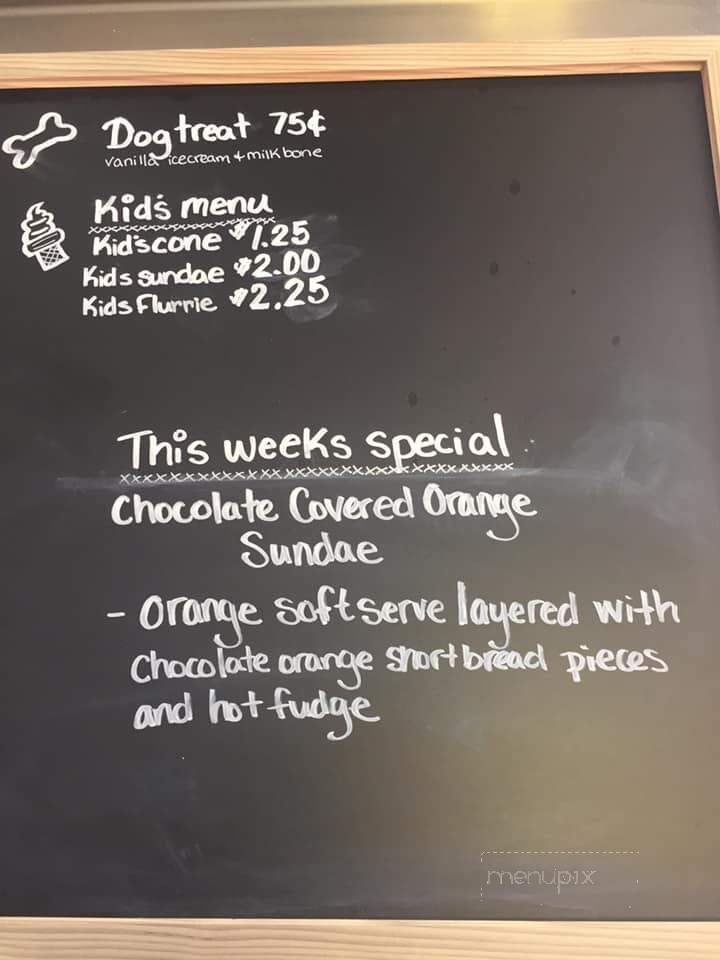 Dog treat 75¢
vanilla icecream + milk bone
Kid's menu
Kid's cone $1.25
Kids sundae $2.00
Kids Flurrie $2.25
This weeks special
Chocolate Covered Orange
Sundae
- Orange soft serve layered with
Chocolate orange shortbread pieces
and hot fudge
menupix